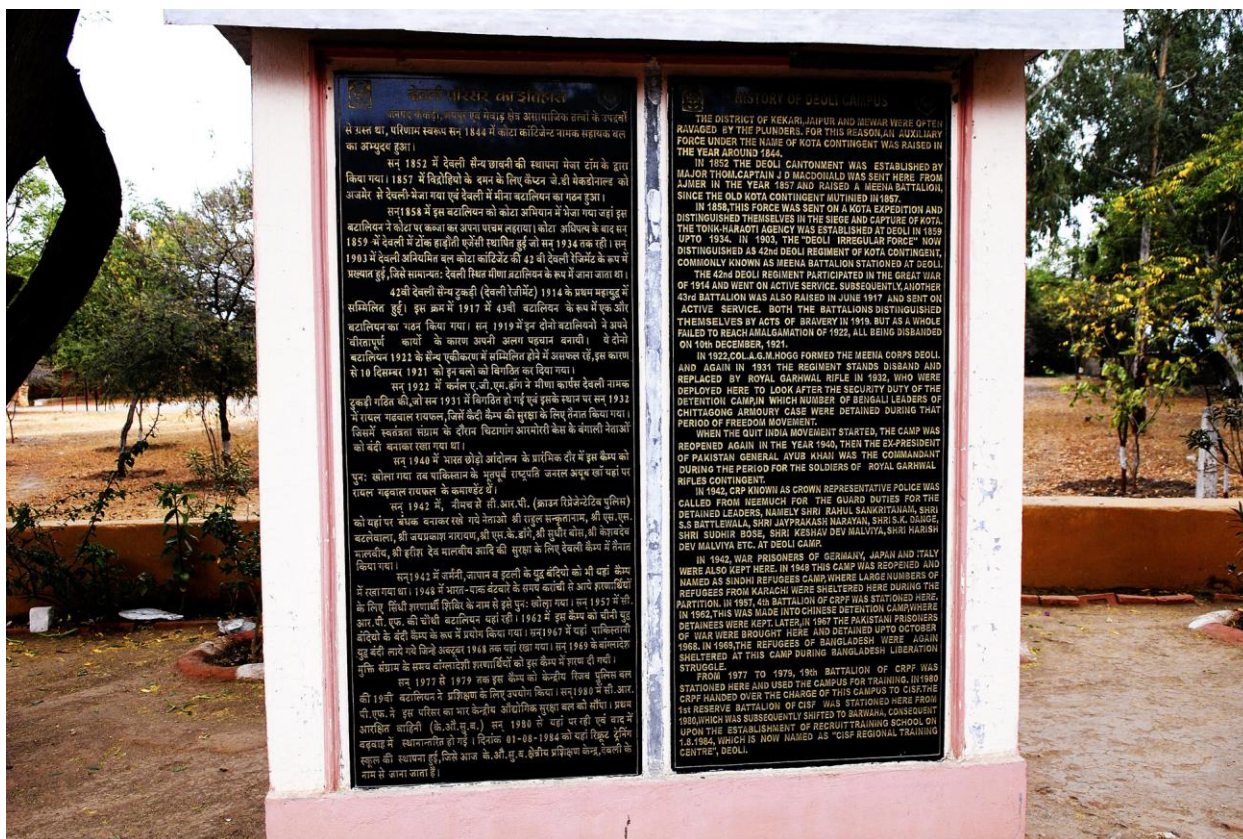 देवली परिसर का इतिहास
जनपद केकड़ी, जयपुर एवं मेवाड़ क्षेत्र असामाजिक तत्वों के उपद्रवों
से ग्रस्त था, परिणाम स्वरूप सन् 1844 में कोटा कांटिजेन्ट नामक सहायक बल
का अभ्युदय हुआ।
सन् 1852 में देवली सैन्य छावनी की स्थापना मेजर टॉम के द्वारा
किया गया। 1857 में विद्रोहियो के दमन के लिए कैप्टन जे.डी मेकडोनाल्ड को
अजमेर से देवली-भेजा गया एवं देवली में मीना बटालियन का गठन हुआ।
सन्1858 में इस बटालियन को कोटा अभियान में भेजा गया जहां इस
बटालियन ने कोटा पर कब्जा कर अपना परचम लहराया। कोटा अधिपत्य के बाद सन्
1859 में देवली में टोंक हाड़ौती एजेंसी स्थापित हुई जो सन् 1934 तक रही। सन्
1903 में देवली अनियमित बल कोटा कांटिजेंट की 42 वी देवली रेजिमेंट के रूप में
प्रख्यात हुई, जिसे सामान्यत: देवली स्थित मीणा बटालियन के रूप में जाना जाता था।
42वी देवली सैन्य टुकड़ी (देवली रेजीमेंट) 1914 के प्रथम महायुद्ध में
सम्मिलित हुई। इस क्रम में 1917 में 43वी बटालियन के रूप में एक और
बटालियन का गठन किया गया। सन् 1919 में इन दोनो बटालियनो ने अपने
वीरतापूर्ण कार्यो के कारण अपनी अलग पहचान बनायी। ये दोनो
बटालियन 1922 के सैन्य एकीकरण में सम्मिलित होने में असफल रहें, इस कारण
से 10 दिसम्बर 1921 को इन बलो को विगठित कर दिया गया।
सन् 1922 में कर्नल ए.जी.एम.हॉग ने मीणा कार्पस देवली नामक
टुकड़ी गठित की, जो सन् 1931 में विगठित हो गई एवं इसके स्थान पर सन् 1932
में रायल गढवाल रायफल, जिसें कैदी कैम्प की सुरक्षा के लिए तैनात किया गया।
जिसमें स्वतंत्रता संग्राम के दौरान चिटागांग आरमोरी केस के बंगाली नेताओं
को बंदी बनाकर रखा गया था।
सन् 1940 में भारत छोड़ो आंदोलन के प्रारंभिक दौर में इस कैम्प को
पुन: खोला गया तब पाकिस्तान के भूतपूर्व राष्ट्रपति जनरल अयूब खाँ यहां पर
रायल गढ़वाल रायफल के कमाण्डेंट थे।
सन् 1942 में, नीमच से सी.आर.पी. (क्राउन रिप्रेजेन्टेटिव पुलिस)
को यहां पर बंधक बनाकर रखे गये नेताओ श्री राहुल सन्कृतानाम, श्री एस.एस.
बटलेवाला, श्री जयप्रकाश नारायण, श्री एस.के.डाँगे, श्री सुधीर बोस, श्री केशवदेव
मालवीय, श्री हरीश देव मालवीय आदि की सुरक्षा के लिए देवली कैम्प में तैनात
किया गया।
सन्1942 में जर्मनी, जापान व इटली के युद्ध बंदियो को भी यहां कैम्प
में रखा गया था। 1948 में भारत-पाक बंटवारे के समय करांची से आये शरणार्थियों
के लिए सिंधी शरणार्थी शिविर के नाम से इसे पुन: खोला गया। सन् 1957 में सी.
आर.पी.एफ. की चौथी बटालियन यहां रही। 1962 में इस कैम्प को चीनी युद्ध
बंदियो के बंदी कैम्प के रूप में प्रयोग किया गया। सन्1967 में यहां पाकिस्तानी
युद्ध बंदी लाये गये जिन्हे अक्टूबर 1968 तक यहां रखा गया। सन् 1969 के बांग्लादेश
मुक्ति संग्राम के समय बांग्लादेशी शरणार्थियों को इस कैम्प में शरण दी गयी।
सन् 1977 से 1979 तक इस कैम्प को केन्द्रीय रिजर्व पुलिस बल
की 19वी बटालियन ने प्रशिक्षण के लिए उपयोग किया। सन्1980 में सी.आर.
पी.एफ. ने इस परिसर का भार केन्द्रीय औद्योगिक सुरक्षा बल को सौंपा। प्रथम
आरक्षित वाहिनी (के.औ.सु.ब.) सन् 1980 से यहां पर रही एवं बाद में
बड़वाह में स्थानान्तरित हो गई। दिनांक 01-08-1984 को यहां रिक्रूट ट्रेनिंग
स्कूल की स्थापना हुई, जिसे आज के.औ.सु.ब. क्षेत्रीय प्रशिक्षण केन्द्र, देवली के
नाम से जाना जाता है।
HISTORY OF DEOLI CAMPUS
THE DISTRICT OF KEKARI,JAIPUR AND MEWAR WERE OFTEN
RAVAGED BY THE PLUNDERS. FOR THIS REASON,AN AUXILIARY
FORCE UNDER THE NAME OF KOTA CONTINGENT WAS RAISED IN
THE YEAR AROUND 1844.
IN 1852 THE DEOLI CANTONMENT WAS ESTABLISHED BY
MAJOR THOM.CAPTAIN J D MACDONALD WAS SENT HERE FROM
AJMER IN THE YEAR 1857 AND RAISED A MEENA BATTALION,
SINCE THE OLD KOTA CONTINGENT MUTINIED IN 1857.
IN 1858,THIS FORCE WAS SENT ON A KOTA EXPEDITION AND
DISTINGUISHED THEMSELVES IN THE SIEGE AND CAPTURE OF KOTA.
THE TONK-HARAOTI AGENCY WAS ESTABLISHED AT DEOLI IN 1859
UPTO 1934. IN 1903, THE "DEOLI IRREGULAR FORCE" NOW
DISTINGUISHED AS 42nd DEOLI REGIMENT OF KOTA CONTINGENT,
COMMONLY KNOWN AS MEENA BATTALION STATIONED AT DEOLI.
THE 42nd DEOLI REGIMENT PARTICIPATED IN THE GREAT WAR
OF 1914 AND WENT ON ACTIVE SERVICE. SUBSEQUENTLY,ANOTHER
43rd BATTALION WAS ALSO RAISED IN JUNE 1917 AND SENT ON
ACTIVE SERVICE. BOTH THE BATTALIONS DISTINGUISHED
THEMSELVES BY ACTS OF BRAVERY IN 1919. BUT AS A WHOLE
FAILED TO REACH AMALGAMATION OF 1922, ALL BEING DISBANDED
ON 10th DECEMBER, 1921.
IN 1922,COL.A.G.M.HOGG FORMED THE MEENA CORPS DEOLI.
AND AGAIN IN 1931 THE REGIMENT STANDS DISBAND AND
REPLACED BY ROYAL GARHWAL RIFLE IN 1932, WHO WERE
DEPLOYED HERE TO LOOK AFTER THE SECURITY DUTY OF THE
DETENTION CAMP,IN WHICH NUMBER OF BENGALI LEADERS OF
CHITTAGONG ARMOURY CASE WERE DETAINED DURING THAT
PERIOD OF FREEDOM MOVEMENT.
WHEN THE QUIT INDIA MOVEMENT STARTED, THE CAMP WAS
REOPENED AGAIN IN THE YEAR 1940, THEN THE EX-PRESIDENT
OF PAKISTAN GENERAL AYUB KHAN WAS THE COMMANDANT
DURING THE PERIOD FOR THE SOLDIERS OF ROYAL GARHWAL
RIFLES CONTINGENT.
IN 1942, CRP KNOWN AS CROWN REPRESENTATIVE POLICE WAS
CALLED FROM NEEMUCH FOR THE GUARD DUTIES FOR THE
DETAINED LEADERS, NAMELY SHRI RAHUL SANKRITANAM, SHRI
S.S BATTLEWALA, SHRI JAYPRAKASH NARAYAN, SHRI S.K. DANGE,
SHRI SUDHIR BOSE, SHRI KESHAV DEV MALVIYA, SHRI HARISH
DEV MALVIYA ETC. AT DEOLI CAMP.
IN 1942, WAR PRISONERS OF GERMANY, JAPAN AND ITALY
WERE ALSO KEPT HERE. IN 1948 THIS CAMP WAS REOPENED AND
NAMED AS SINDHI REFUGEES CAMP, WHERE LARGE NUMBERS OF
REFUGEES FROM KARACHI WERE SHELTERED HERE DURING THE
PARTITION. IN 1957, 4th BATTALION OF CRPF WAS STATIONED HERE.
IN 1962,THIS WAS MADE INTO CHINESE DETENTION CAMP,WHERE
DETAINEES WERE KEPT. LATER,IN 1967 THE PAKISTANI PRISONERS
OF WAR WERE BROUGHT HERE AND DETAINED UPTO OCTOBER
1968. IN 1969,THE REFUGEES OF BANGLADESH WERE AGAIN
SHELTERED AT THIS CAMP DURING BANGLADESH LIBERATION
STRUGGLE.
FROM 1977 TO 1979, 19th BATTALION OF CRPF WAS
STATIONED HERE AND USED THE CAMPUS FOR TRAINING. IN 1980
CRPF HANDED OVER THE CHARGE OF THIS CAMPUS TO CISF.THE
1st RESERVE BATTALION OF CISF WAS STATIONED HERE FROM
1980,WHICH WAS SUBSEQUENTLY SHIFTED TO BARWAHA, CONSEQUENT
UPON THE ESTABLISHMENT OF RECRUIT TRAINING SCHOOL ON
1.8.1984, WHICH IS NOW NAMED AS "CISF REGIONAL TRAINING
CENTRE", DEOLI.